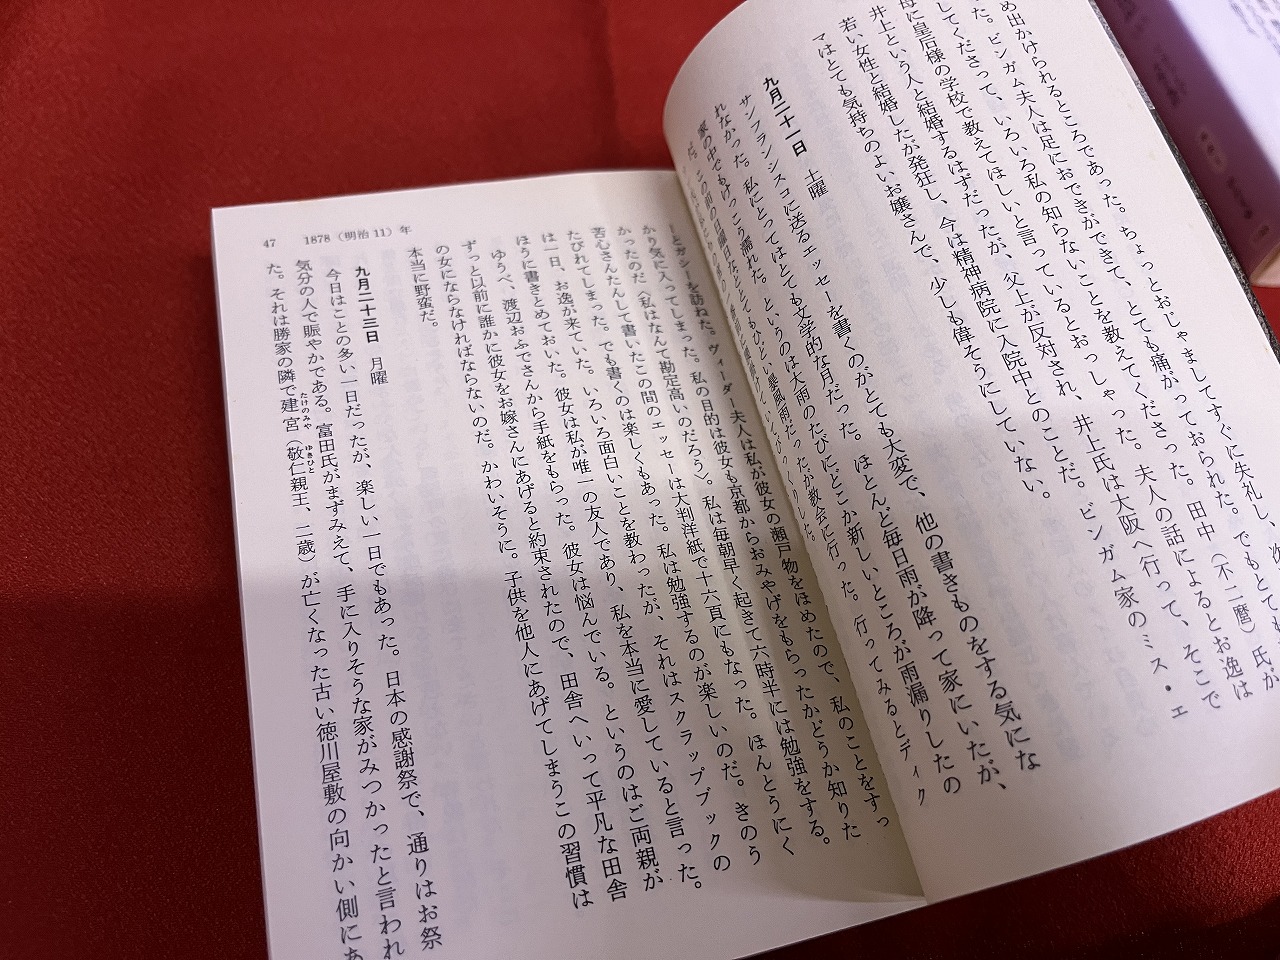 め出かけられるところであった。ちょっとおじゃましてすぐに失礼し、次
た。ビンガム夫人は足におできができて、とても痛がっておられた。でもとても
してくださって、いろいろ私の知らないことを教えてくださった。田中（不二麿）氏が
母に皇后様の学校で教えてほしいと言っているとおっしゃった。夫人の話によるとお逸は
井上という人と結婚するはずだったが、父上が反対され、井上氏は大阪へ行って、そこで
若い女性と結婚したが発狂し、今は精神病院に入院中とのことだ。ビンガム家のミス・エ
マはとても気持ちのよいお嬢さんで、少しも偉そうにしていない。
九月二十一日 土曜
サンフランシスコに送るエッセーを書くのがとても大変で、他の書きものをする気にな
れなかった。私にとってはとても文学的な月だった。ほとんど毎日雨が降って家にいたが、
家の中でもけっこう濡れた。というのは大雨のたびにどこか新しいところが雨漏りしたの
だ。この前の日曜日などとてもひどい暴風雨だったが教会に行った。行ってみるとディク
ーとガシーを訪ねた。ヴィーダー夫人は私が彼女の瀬戸物をほめたので、私のことをすっ
かり気に入ってしまった。私の目的は彼女も京都からおみやげをもらったかどうか知りた
かったのだ（私はなんて勘定高いのだろう）。私は毎朝早く起きて六時半には勉強をする。
苦心さんたんして書いたこの間のエッセーは大判洋紙で十六頁にもなった。ほんとうにく
たびれてしまった。でも書くのは楽しくもあった。私は勉強するのが楽しいのだ。きのう
は一日、お逸が来ていた。いろいろ面白いことを教わったが、それはスクラップブックの
ほうに書きとめておいた。彼女は私が唯一の友人であり、私を本当に愛していると言った。
ゆうべ、渡辺おふでさんから手紙をもらった。彼女は悩んでいる。というのはご両親が
ずっと以前に誰かに彼女をお嫁さんにあげると約束されたので、田舎へいって平凡な田舎
の女にならなければならないのだ。かわいそうに。子供を他人にあげてしまうこの習慣は
本当に野蛮だ。
九月二十三日 月曜
今日はことの多い一日だったが、楽しい一日でもあった。日本の感謝祭で、通りはお祭
気分の人で賑やかである。富田氏がまずみえて、手に入りそうな家がみつかったと言われ
た。それは勝家の隣で建宮（敬仁親王、二歳）が亡くなった古い徳川屋敷の向かい側にあ
たけのみや ゆきひと
47 1878（明治11）年